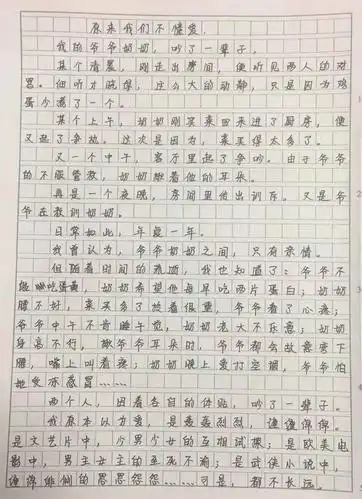 原来我们不懂爱
我的爷爷奶奶，吵了一辈子。
某个清晨，刚走出房间，便听见两人的对
骂。细听才晓得，这么大的动静，只是因为鸡
蛋少煮了一个。
某个上午，奶奶刚买菜回来进了厨房，便
又起了争执。这次是因为，菜买得太多了。
又一个中午，客厅里起了争吵。由于爷爷
的不服管教，奶奶揪着他的耳朵。
再是一个夜晚，房间里传出训斥。又是爷
爷在教训奶奶。
日常如此，年复一年。
我曾认为，爷爷奶奶之间，只有亲情。
但随着时间的流逝，我也知道了：爷爷不
能吃蛋黄，奶奶希望他每早吃两片蛋白；奶奶
腰不好，菜买多了拎着很重，爷爷看了心疼；
爷爷中午不肯睡午觉，奶奶老大不乐意；奶奶
身高不行，揪爷爷耳朵时，爷爷都会故意弯下
腰，嘴上叫着疼；奶奶晚上爱打空调，爷爷怕
她受凉感冒……
两个人，因着各自的体贴，吵了一辈子。
我原本以为爱，是轰轰烈烈，缠缠绵绵。
是文艺片中，少男少女的互相试探；是欧美电
影中，男主女主的至死不渝；是武侠小说中，
缠绵悱恻的恩恩怨怨……可是，都不长远。